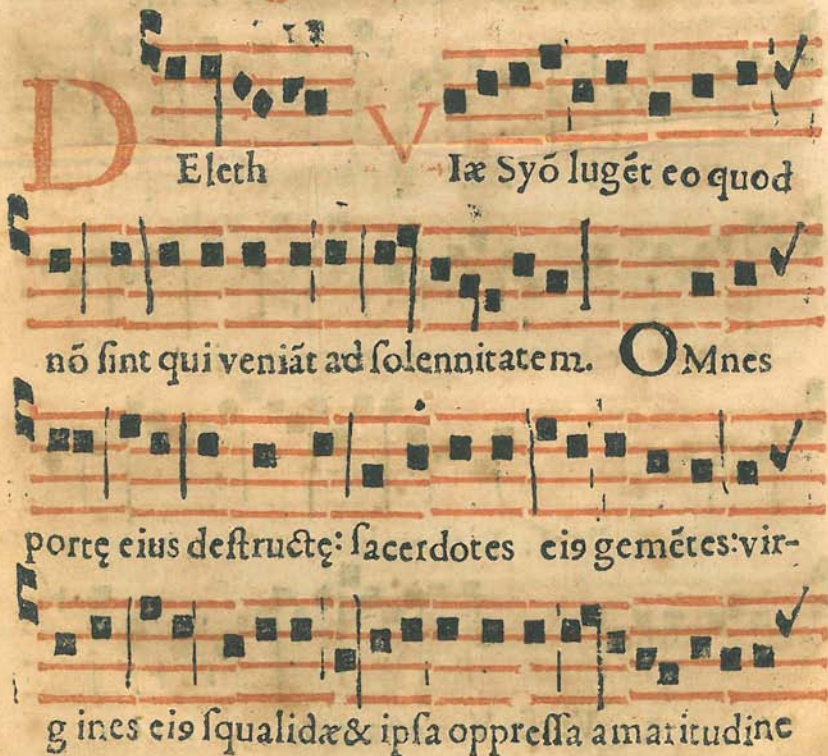 DEleth VIæ Syō lugēt eo quod
nō ſint qui veniāt ad ſolennitatem. OMnes
portę eius deſtructę: ſacerdotes eiꝰ gemētes: vir-
gines eiꝰ ſqualidæ & ipſa oppreſſa amaritudine